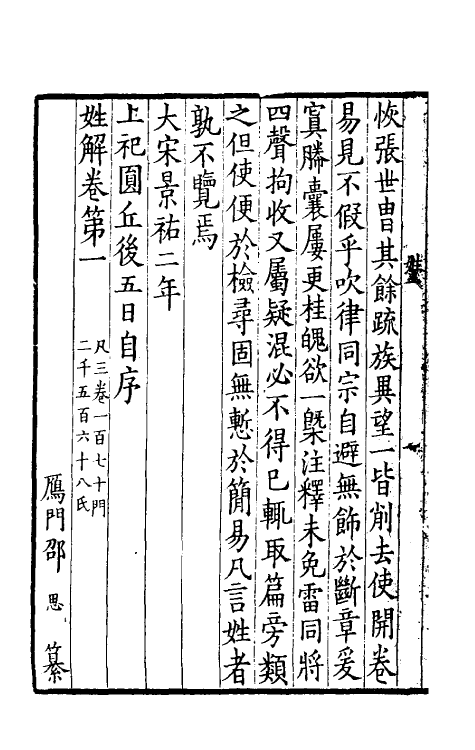 恢張世冑其餘疏族異望一皆削去使開卷
易見不假乎吹律同宗自避無飾於斷章爰
寘勝囊屢更桂魄欲一槩注釋未免雷同將
四聲拘收又屬疑混必不得已輒取篇旁類
之但使便於檢尋固無慙於簡易凡言姓者
孰不覽焉
大宋景祐二年
上祀圓丘後五日自序
姓解卷第一
凡三卷一百七十門
二千五百六十八氏
鴈門邵 思 纂
一